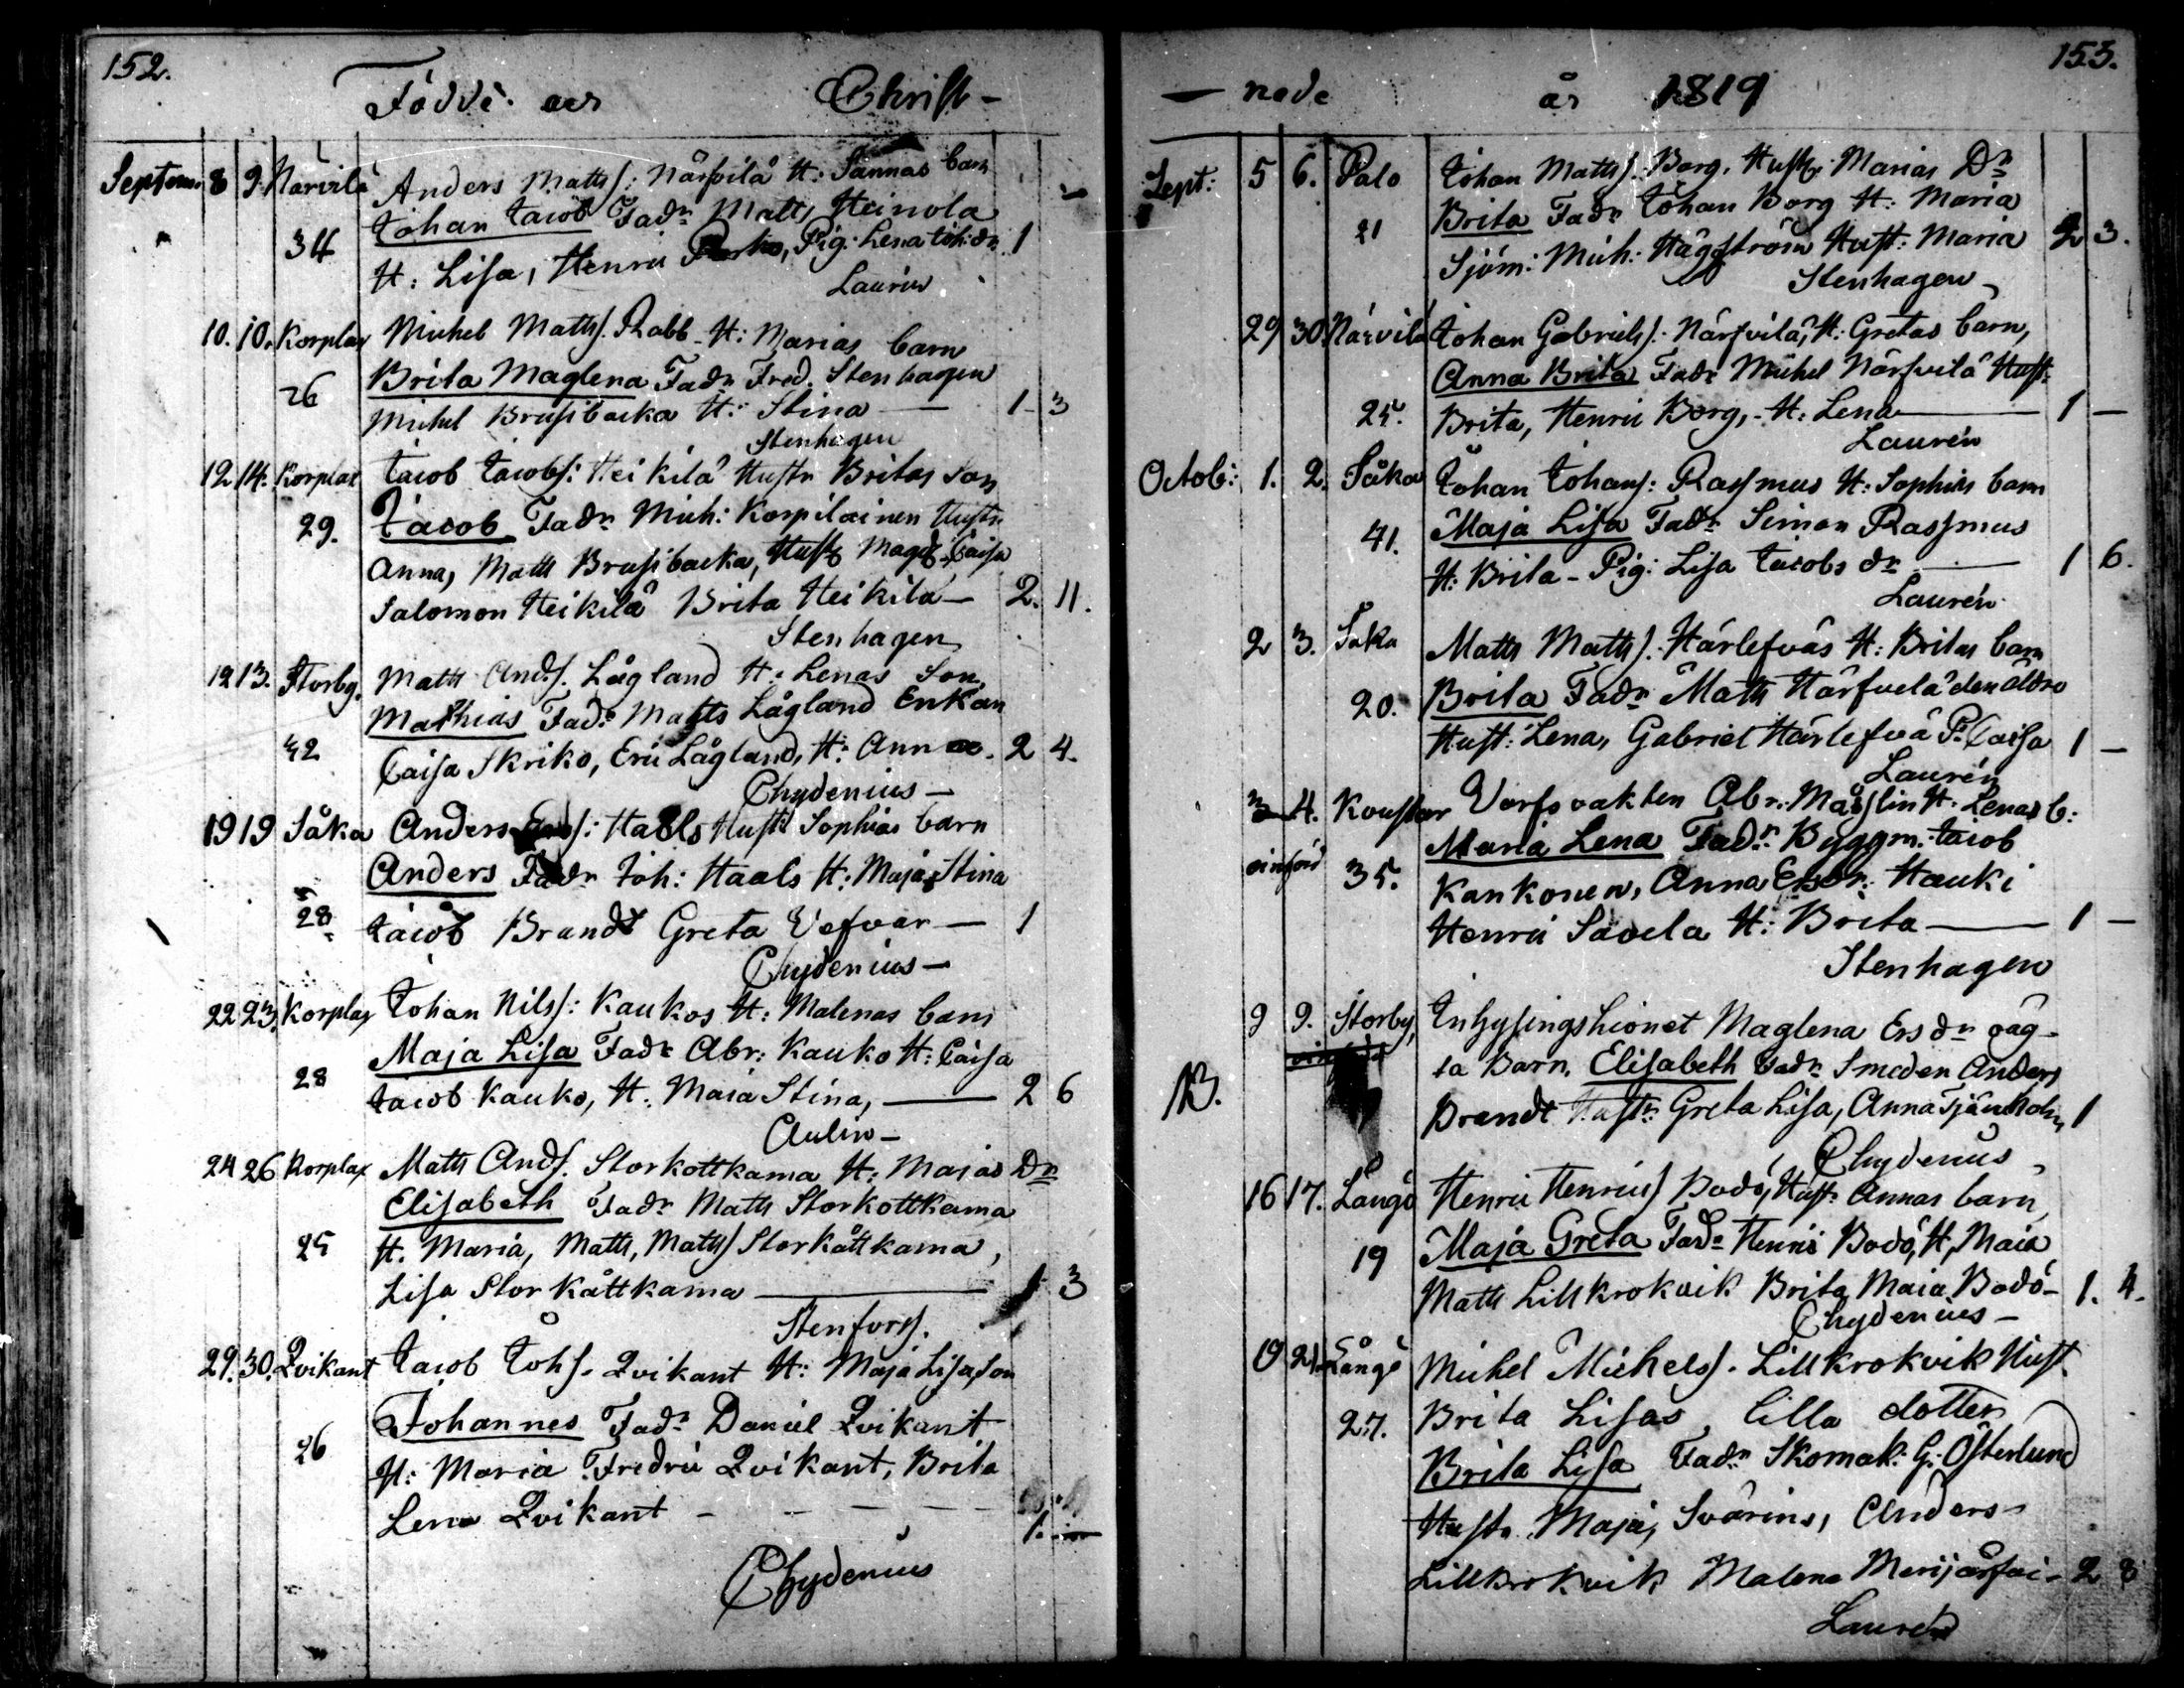 152.
Födde och Christ-
Septem. 8 9. Närvilä Anders Matts: Närfvilä H: Sannas barn
Johan Jacob Fadr Matts Heinola
34 H: Lisa, Henric Pig. Lena Joh: dr. 1
Laurin
10. 10. Korplax Michel Matts. Rabb H: Marias barn
Brita Maglena Fadr Fred. Stenhagen
26 Michel Brusibacka H: Stina — 1 - 3
Stenhagen
12 14. Korplax Jacob Jacobs: Heikilä Hustr Britas Son
29. Jacob Fadr Mich: Korpilainen Hustr.
Anna, Matts Brusibacka, Hustr Magd. Caisa
Salomon Heikilä Brita Heikilä — 2. 11.
Stenhagen
12 13. Storby. Matts Ands. Lågland H: Lenas Son
Mathias Fadr Matts Lågland Enkan
42 Caisa Skriko, Eric Lågland, H: Anna. 2 4.
Chydenius —
19 19 Såka Anders : Haals Hustr Sophias barn
Anders Fadr Joh: Haals H: Maja Stina
28 Jacob Brandt Greta Vefvar — 1
Chydenius —
22 23. Korplax Johan Nils: Kaukos H: Malenas barn
Maja Lisa Fadr Abr: Kauko H: Caisa
28 Jacob Kauko, H: Maia Stina, — 2 6
Aulin —
24 26 Korplax Matts Ands. Storkottkama H: Majas Dr
Elisabeth Fadr Matts Storkottkama
25 H. Maria, Matts, Matts Storkåttkama,
Lisa Storkåttkama — 1 3
Stenfors.
29. 30. Qvikant Jacob Johs. Qvikant H: Maja Lisas son
Johannes Fadr Daniel Qvikant
26 H: Maria Fredric Qvikant, Brita
Lena Qvikant - - - - 1. —
Chydenius
153.
— nade år 1819
Sept: 5 6. Palo Johan Matts: Borg. Hustr. Marias Dr
21 Brita Fadr Johan Borg H: Maria
Sjöm: Mich: Häggström Hust: Maria 2 3.
Stenhagen
29 30. Närvilä Johan Gabriels: Närfvilä, H: Gretas barn,
Anna Brita Fadr Michel Närfvilä Hust:
25. Brita, Henric Borg, H: Lena — 1 —
Laurén
Octob: 1. 2. Såka Johan Johans: Rasmus H: Sophias barn
41. Maja Lisa Fadr Simon Rasmus
H: Brita - Pig: Lisa Jacobs dr — 1 6.
Laurén
2 3. Såka Matts Matts. Härlefväs H: Britas barn
20. Brita Fadr Matts den äldre
Hust: Lena, Gabriel Härlefvä P. Caisa 1 —
Laurén
3 4. Varfsvakten Abr. H: Lenas b:
35. Maria Lena Fadr Byggm. Jacob
Kankonen, Anna Hauki
Henric Savela H: Brita — 1 —
Stenhagen
9 9. Storby, Inhysingshionet Maglena Ersdr oäg-
ta Barn, Elisabeth Fadr Smeden Anders
B. Brandt Hustr Greta Lisa, Anna 1
Chydenius
16 17. Långö Henric Henrics Bodö, Hustr Annas barn
19 Maja Greta Fadr Henric Bodö, H. Maia
Matts Lillkrokvik Brita Maia Bodö- 1. 4.
Chydenius —
19 21. Långö Michel Michels. Lillkrokvik Hust.
27. Brita Lisas lilla dotter
Brita Lisa Fadr Skomak. G. Österlund
Hustr. Maja, Anders
Lillkrokvik Malena 2 8
Laurén